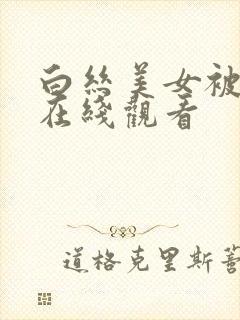 白丝美女被
在綫觀看
道格克里斯蒂